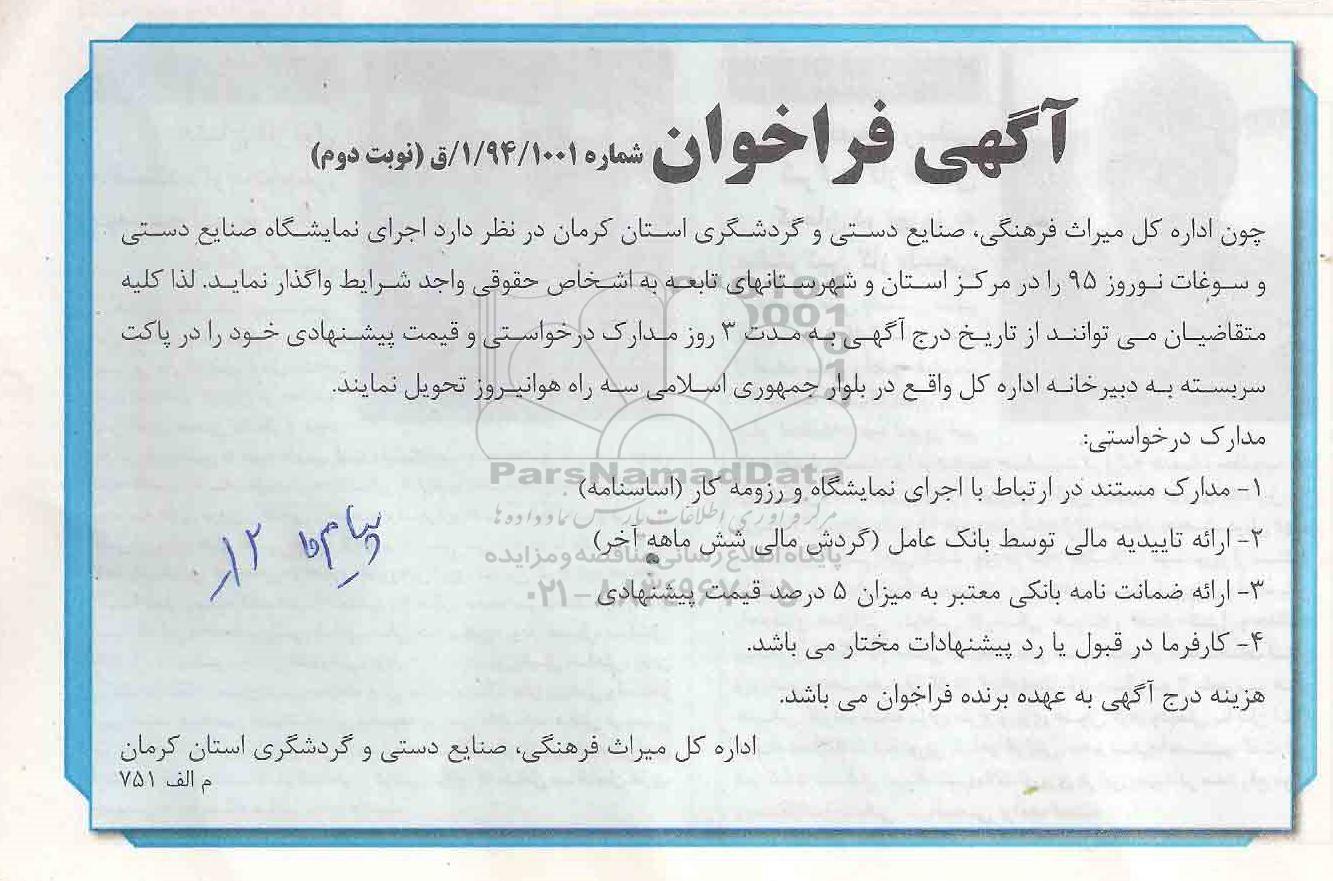 آگهی فراخوان شماره ۱/۹۴/۱۰۰۱/ق (نوبت دوم)
چون اداره کل میراث فرهنگی، صنایع دستی و گردشگری استان کرمان در نظر دارد اجرای نمایشگاه صنایع دستی
و سوغات نوروز ۹۵ را در مرکز استان و شهرستانهای تابعه به اشخاص حقوقی واجد شرایط واگذار نماید. لذا کلیه
متقاضیان می توانند از تاریخ درج آگهی به مدت ۳ روز مدارک درخواستی و قیمت پیشنهادی خود را در پاکت
سربسته به دبیرخانه اداره کل واقع در بلوار جمهوری اسلامی سه راه هوانیروز تحویل نمایند.
مدارک درخواستی:
۱- مدارک مستند در ارتباط با اجرای نمایشگاه و رزومه کار (اساسنامه)
ParsNamadData
مرکز فرآوری اطلاعات پارس نماد داده ها
۲- ارائه تاییدیه مالی توسط بانک عامل (گردش مالی شش ماهه آخر)
پایگاه اطلاع رسانی مناقصه و مزایده
۳- ارائه ضمانت نامه بانکی معتبر به میزان ۵ درصد قیمت پیشنهادی
۴- کارفرما در قبول یا رد پیشنهادات مختار می باشد.
هزینه درج آگهی به عهده برنده فراخوان می باشد.
اداره کل میراث فرهنگی، صنایع دستی و گردشگری استان کرمان
م الف ۷۵۱